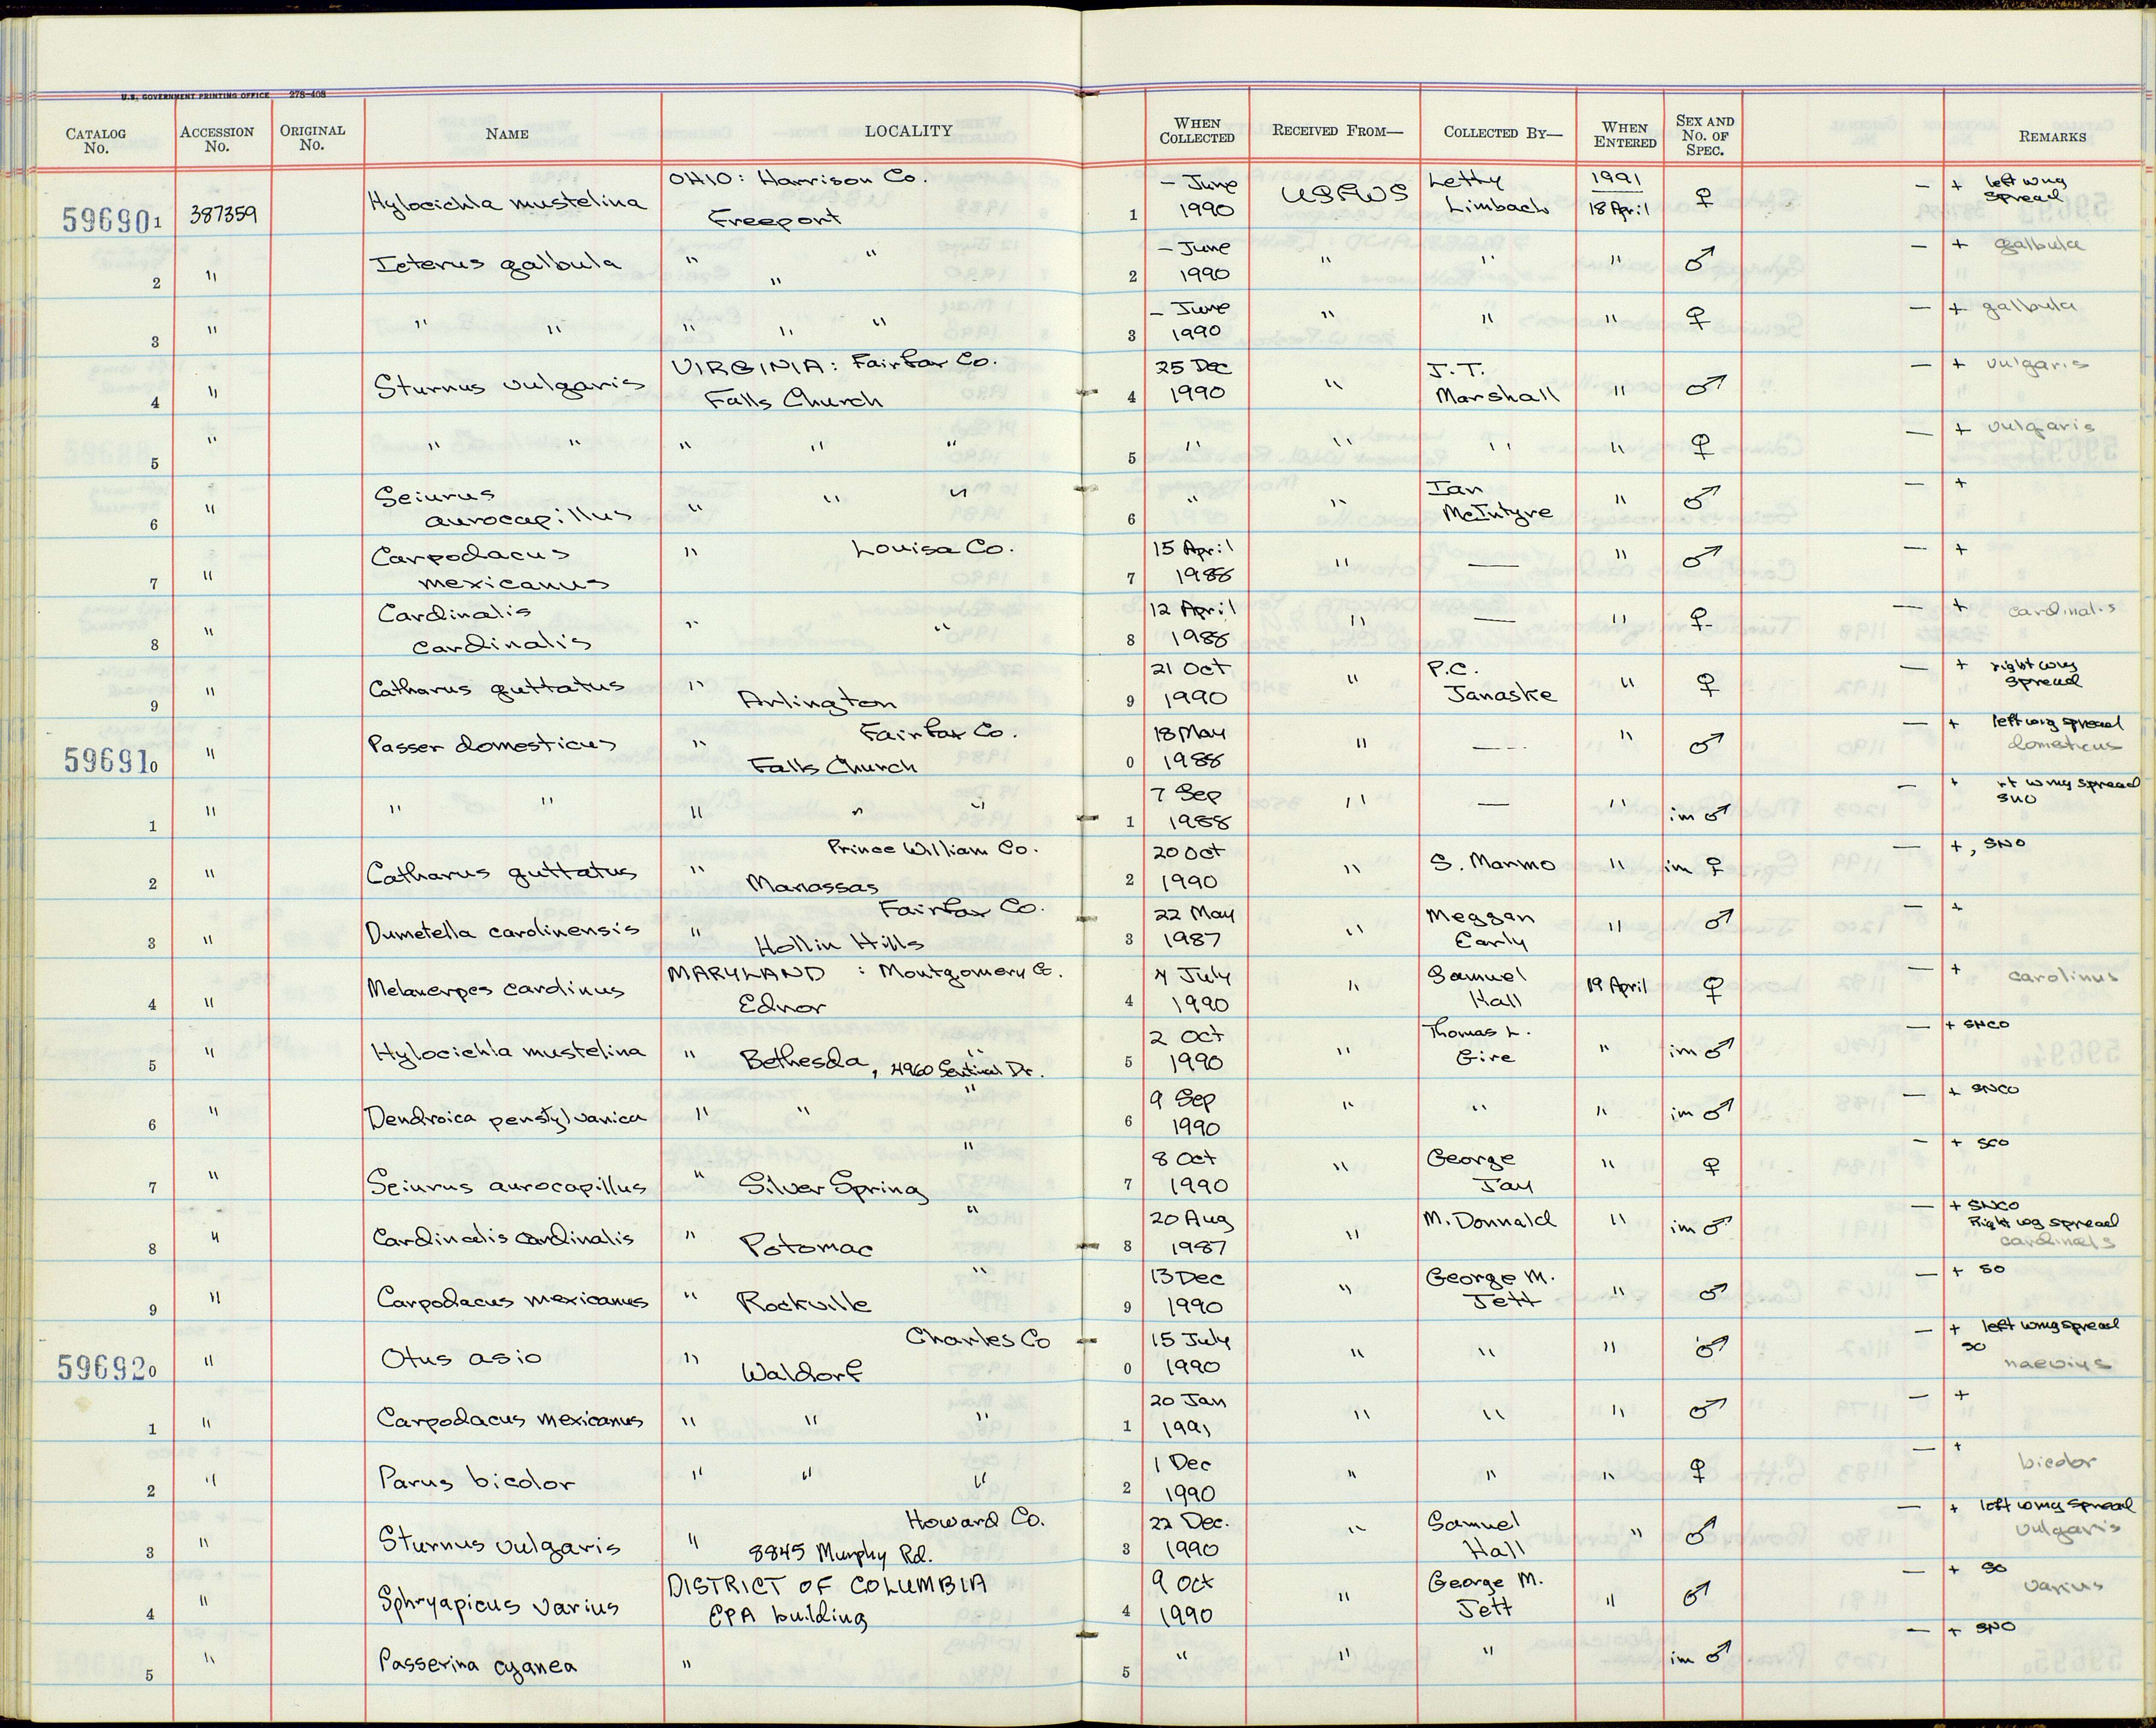 U.S. GOVERNMENT PRINTING OFFICE 278-408
CATALOG No. ACCESSION No. ORIGINAL No. NAME LOCALITY WHEN COLLECTED RECEIVED FROM— COLLECTED BY— WHEN ENTERED SEX AND No. OF SPEC. REMARKS
596901 387359 Hylocichla mustelina OHIO: Harrison Co. Freeport 1 – June 1990 USFWS Letty Limbach 1991 18 April ♀ — + left wing spread
2 " Icterus galbula " " " 2 – June 1990 " " " ♂ — + galbula
3 " " " " " " 3 – June 1990 " " " ♀ — + galbula
4 " Sturnus vulgaris VIRGINIA: Fairfax Co. Falls Church 4 25 Dec 1990 " J.T. Marshall " ♂ — + vulgaris
5 " " " " " " 5 " " " " ♀ — + vulgaris
6 " Seiurus aurocapillus " " " 6 " " Ian McIntyre " ♂ — +
7 " Carpodacus mexicanus " Louisa Co. 7 15 April 1988 " — " ♂ — +
8 " Cardinalis cardinalis " " 8 12 April 1988 " — " ♀ — + cardinalis
9 " Catharus guttatus " Arlington 9 21 Oct 1990 " P.C. Janaske " ♀ — + right wing spread
596910 " Passer domesticus " Fairfax Co. Falls Church 0 18 May 1988 " — " ♂ — + left wing spread domesticus
1 " " " " " " 1 7 Sep 1988 " — " im ♂ — + rt wing spread SNO
2 " Catharus guttatus " Prince William Co. Manassas 2 20 Oct 1990 " S. Marmo " im ♀ — +, SNO
3 " Dumetella carolinensis " Fairfax Co. Hollin Hills 3 22 May 1987 " Meggan Early " ♂ — +
4 " Melanerpes carolinus MARYLAND : Montgomery Co. Ednor 4 4 July 1990 " Samuel Hall 19 April ♀ — + carolinus
5 " Hylocichla mustelina " " Bethesda, 4960 Sentinel Dr. 5 2 Oct 1990 " Thomas L. Gire " im ♂ — + SNCO
6 " Dendroica pensylvanica " " " 6 9 Sep 1990 " " " im ♂ — + SNCO
7 " Seiurus aurocapillus " " Silver Spring 7 8 Oct 1990 " George Jay " ♀ — + SCO
8 " Cardinalis cardinalis " " Potomac 8 20 Aug 1987 " M. Donnald " im ♂ — + SNCO Right wg spread cardinalis
9 " Carpodacus mexicanus " " Rockville 9 13 Dec 1990 " George M. Jett " ♂ — + SO
596920 " Otus asio " Charles Co Waldorf 0 15 July 1990 " " " ♂ — + left wing spread SO naevius
1 " Carpodacus mexicanus " " " 1 20 Jan 1991 " " " ♂ — +
2 " Parus bicolor " " " 2 1 Dec 1990 " " " ♀ — + bicolor
3 " Sturnus vulgaris " Howard Co. 8845 Murphy Rd. 3 22 Dec. 1990 " Samuel Hall " ♂ — + left wing spread vulgaris
4 " Sphryapicus varius DISTRICT OF COLUMBIA EPA building 4 9 Oct 1990 " George M. Jett " ♂ — + SO varius
5 " Passerina cyanea " 5 " " " im ♂ — + SNO